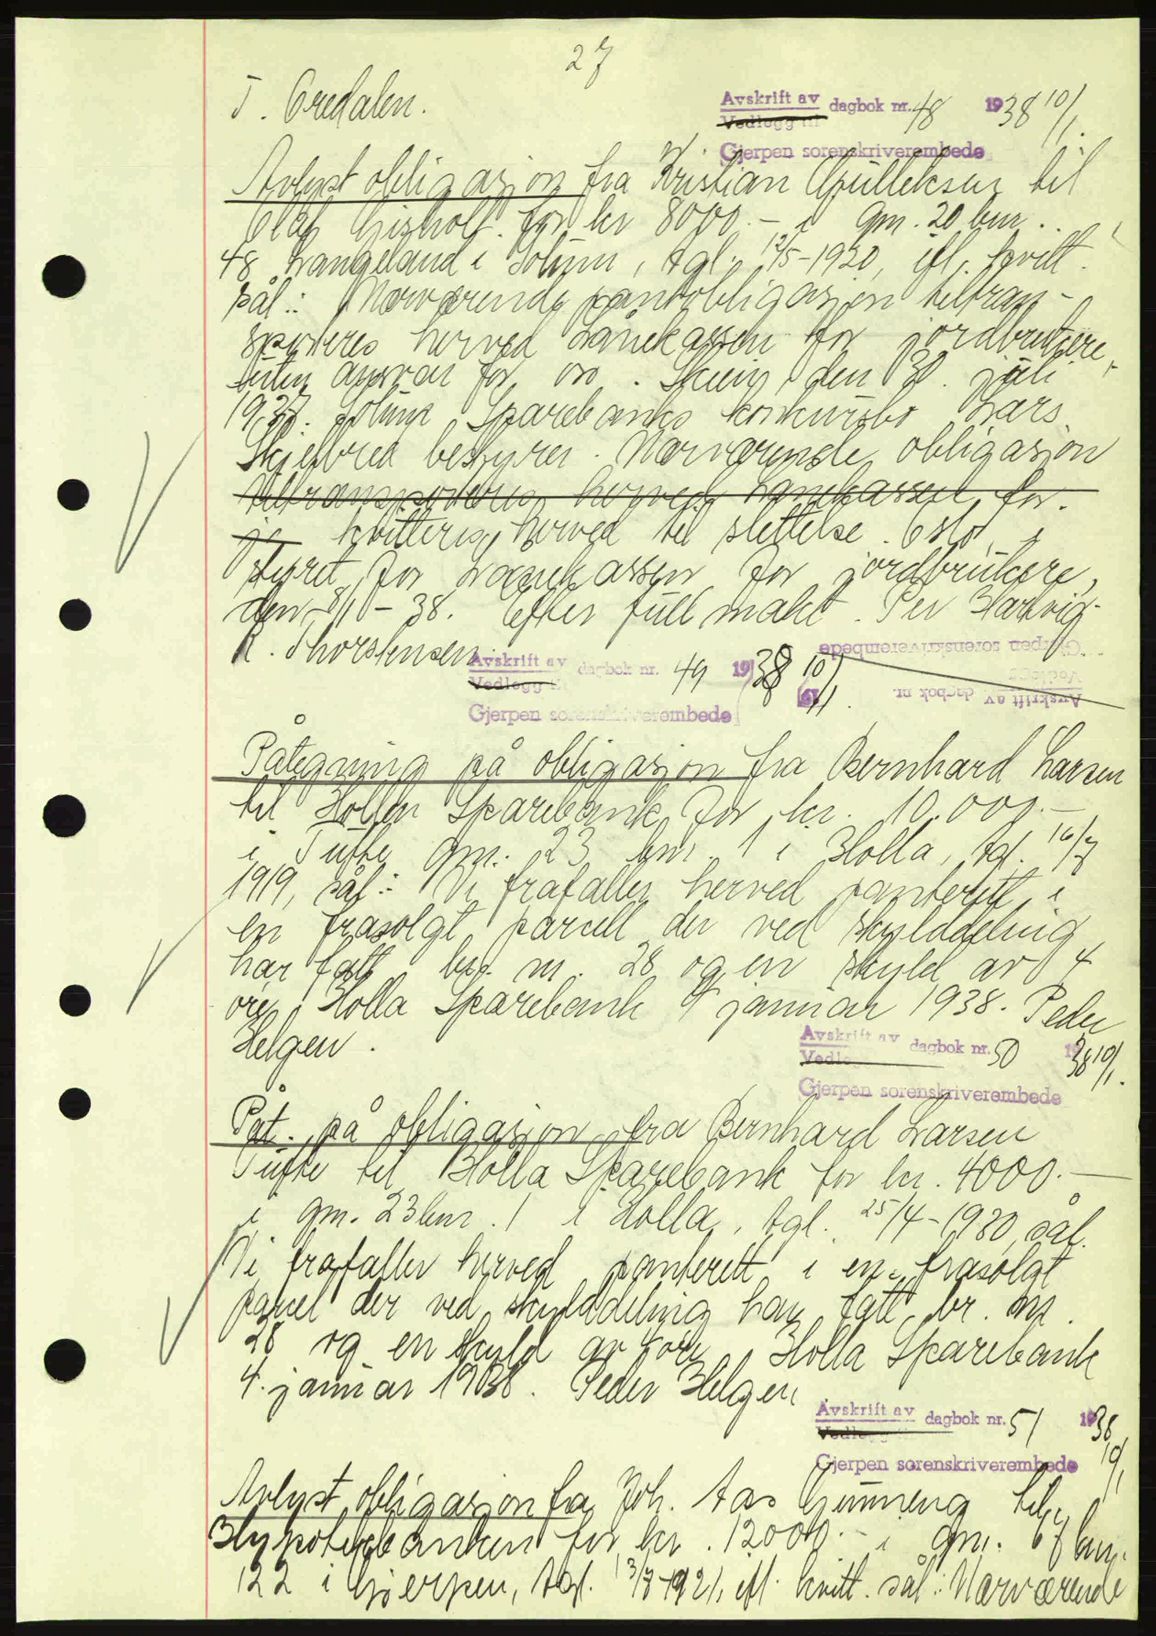 27
T. Oredalen.
Avskrift av dagbok nr. 48 1938 10/1.
Vedlegg
Gjerpen sorenskriverembede
Avlyst obligasjon fra Kristian Gulleksen til
Olaf Gisholt for kr 8000.- i gnr. 20 bnr.
48 Langeland i Solum, tgl. 12/5-1920, ifl. kvitt.
sål.: Nærværende pantobligasjon tiltran-
sporteres herved Lånekassen for jordbrukere,
uten ansvar for oss. Skien den 30. juli
1937. Solum Sparebanks konkursbo Lars
Skjelbred bestyrer. Nærværende obligasjon
tiltransporteres herved Lånekassen for
jo kvitteres herved til slettelse. Oslo, i
styret for Lånekassen for jordbrukere,
den 8/1-38. Efter fullmakt. Per Hartvig
R. Thorstensen
Avskrift av dagbok nr. 49 1938 10/1.
Vedlegg
Gjerpen sorenskriverembede
Avskrift av dagbok nr. 19
Vedlegg
Gjerpen sorenskriverembede
Påtegning på obligasjon fra Bernhard Larsen
til Holla Sparebank for kr. 10.000.-
i Tufte gnr. 23 bnr. 1 i Holla, tgl. 16/7
1919, sål.: Vi frafaller herved panterett i
en frasolgt parcell der ved skylddeling
har fått br. nr. 28 og en skyld av 4
øre. Holla Sparebank 4 januar 1938. Peder
Helgen.
Avskrift av dagbok nr. 50 1938 10/1.
Vedlegg
Gjerpen sorenskriverembede
Påt. på obligasjon fra Bernhard Larsen
Tufte til Holla Sparebank for kr. 4000.-
i gnr. 23 bnr. 1 i Holla, tgl. 25/4-1930, sål.
Vi frafaller herved panterett i en frasolgt
parcel der ved skylddeling har fått br. nr.
28 og en skyld av 4 øre. Holla Sparebank
4. januar 1938. Peder Helgen
Avskrift av dagbok nr. 51 1938 10/1
Vedlegg
Gjerpen sorenskriverembede
Avlyst obligasjon fra Joh. Aas Gunneng til
Hypotekbanken for kr. 12000.- i gnr. 67 bnr.
122 i Gjerpen, tgl. 13/8-1921, ifl. kvitt. sål.: Nærværende